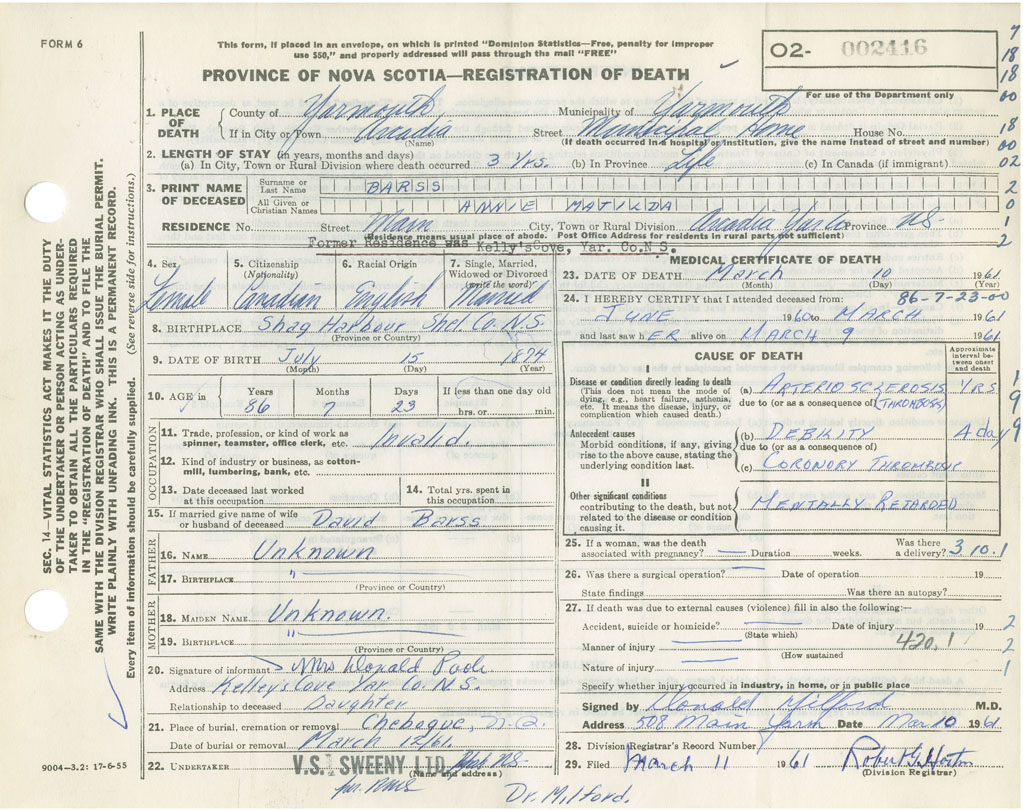 FORM 6
This form, if placed in an envelope, on which is printed "Dominion Statistics—Free, penalty for improper
use $50," and properly addressed will pass through the mail "FREE"
PROVINCE OF NOVA SCOTIA—REGISTRATION OF DEATH
O2- 002416
For use of the Department only
7
18
18
00
18
00
02
2
0
1
2
SEC. 14—VITAL STATISTICS ACT MAKES IT THE DUTY
OF THE UNDERTAKER OR PERSON ACTING AS UNDER-
TAKER TO OBTAIN ALL THE PARTICULARS REQUIRED
IN THE "REGISTRATION OF DEATH" AND TO FILE THE
SAME WITH THE DIVISION REGISTRAR WHO SHALL ISSUE THE BURIAL PERMIT.
WRITE PLAINLY WITH UNFADING INK. THIS IS A PERMANENT RECORD.
Every item of information should be carefully supplied. (See reverse side for instructions.)
1. PLACE OF DEATH
County of Yarmouth Municipality of Yarmouth
If in City or Town Arcadia Street Municipal Home House No.
(Name) (If death occurred in a hospital or institution, give the name instead of street and number)
2. LENGTH OF STAY (in years, months and days)
(a) In City, Town or Rural Division where death occurred 3 Yrs. (b) In Province Life (c) In Canada (if immigrant)
3. PRINT NAME OF DECEASED
Surname or Last Name BARSS
All Given or Christian Names ANNIE MATILDA
RESIDENCE No. Street Main City, Town or Rural Division Arcadia Province NS-
(Residence means usual place of abode. Post Office Address for residents in rural parts not sufficient)
Former Residence was Kelly'sCove, Yar. Co.N.S.
4. Sex Female
5. Citizenship (Nationality) Canadian
6. Racial Origin English
7. Single, Married, Widowed or Divorced (write the word) Married
8. BIRTHPLACE Shag Harbour Shel. Co. N.S.
(Province or Country)
9. DATE OF BIRTH July 15 1874
(Month) (Day) (Year)
10. AGE in Years Months Days If less than one day old
86 7 23 hrs. or min.
OCCUPATION
11. Trade, profession, or kind of work as
spinner, teamster, office clerk, etc. Invalid.
12. Kind of industry or business, as cotton-
mill, lumbering, bank, etc.
13. Date deceased last worked
at this occupation
14. Total yrs. spent in
this occupation
15. If married give name of wife
or husband of deceased David Barss
FATHER
16. NAME Unknown
17. BIRTHPLACE "
(Province or Country)
MOTHER
18. MAIDEN NAME Unknown.
19. BIRTHPLACE "
(Province or Country)
20. Signature of informant Mrs Donald Pooh.
Address Kelley's Cove Yar Co. N.S.
Relationship to deceased Daughter
21. Place of burial, cremation or removal Chebogue,
Date of burial or removal March 12/61.
22. UNDERTAKER V.S. SWEENY LTD. NS-
(Name and address)
9004—3.2: 17-6-55
MEDICAL CERTIFICATE OF DEATH
23. DATE OF DEATH March 10 1961
(Month) (Day) (Year)
24. I HEREBY CERTIFY that I attended deceased from: 86-7-23-00
JUNE 1960 to MARCH 1961
and last saw h ER alive on MARCH 9 1961
CAUSE OF DEATH
Approximate interval between onset and death
I
Disease or condition directly leading to death
(This does not mean the mode of
dying, e.g., heart failure, asthenia,
etc. It means the disease, injury, or
complication which caused death.)
(a) ARTERIOSCLEROSIS YRS
due to (or as a consequence of) (THROMBOSIS)
Antecedent causes
Morbid conditions, if any, giving
rise to the above cause, stating the
underlying condition last.
(b) DEBILITY 4 day
due to (or as a consequence of)
(c) CORONORY THROMBUS
II
Other significant conditions
contributing to the death, but not
related to the disease or condition
causing it.
MENTALLY RETARDED
1
9
9
25. If a woman, was the death
associated with pregnancy? — Duration weeks. Was there
a delivery? 310.1
26. Was there a surgical operation? — Date of operation 19
State findings Was there an autopsy?
27. If death was due to external causes (violence) fill in also the following:—
Accident, suicide or homicide? — Date of injury 19 2
(State which)
Manner of injury — 420.1 2
(How sustained
Nature of injury — 1
Specify whether injury occurred in industry, in home, or in public place
Signed by Donald Milford M.D.
Address 508 Main Yarm Date Mar 10 1961.
28. Division Registrar's Record Number
29. Filed March 11 1961 Robert
(Division Registrar)
Dr. Milford.